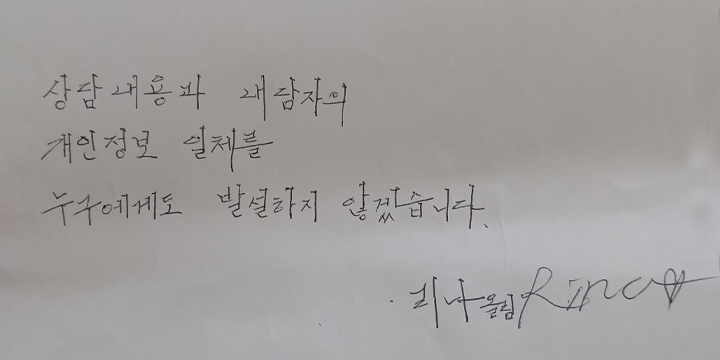 상담내용과 내담자의
개인정보 일체를
누구에게도 발설하지 않겠습니다.
리나 올림 Rina